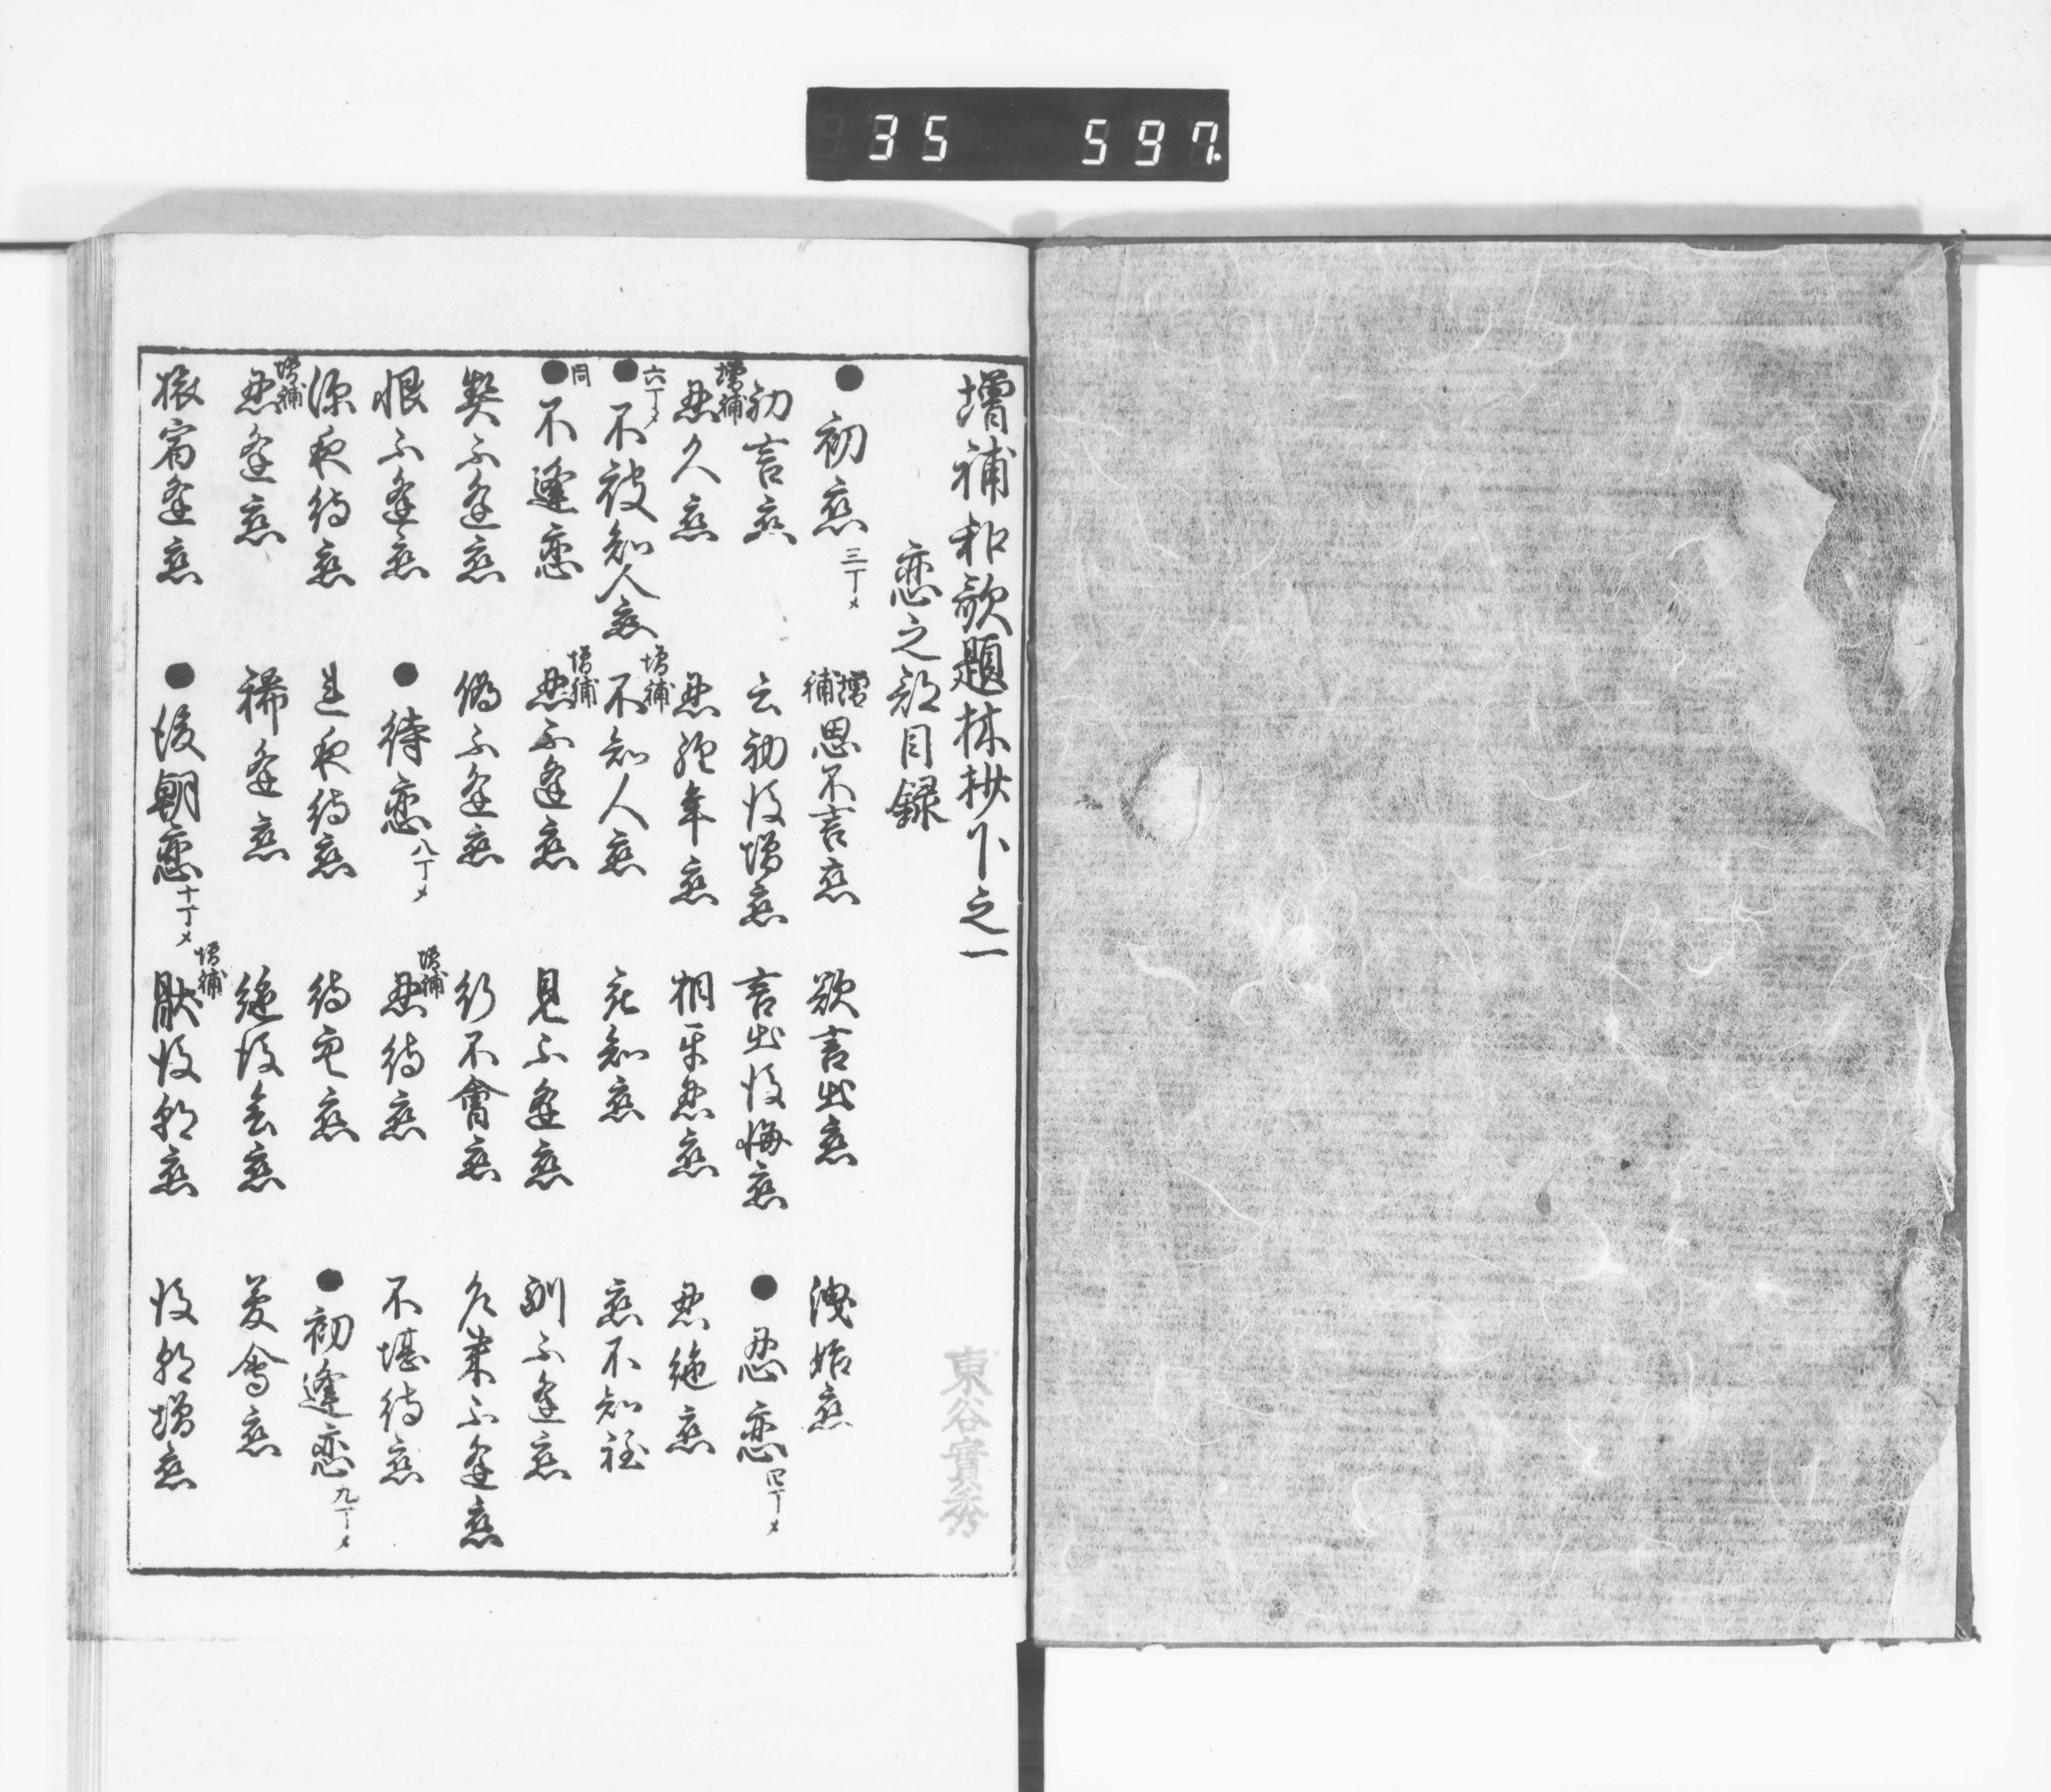 35 597
増補和歌題林抄下之一
恋之部目録
東谷實秀
●初恋三丁メ 増補思不言恋 欲言出恋 洩始恋
初言恋 云初後増恋 言出後悔恋 ●忍恋四丁メ
増補忍久恋 忍経年恋 相互忍恋 忍絶恋
●六丁メ不被知人恋 増補不知人恋 恋不知
●同不逢恋 増補忍不逢恋 見不逢恋 馴不逢恋
契不逢恋 偽不逢恋 行不会恋 久恋不逢恋
恨不逢恋 ●待恋八丁メ 増補忍待恋 不堪待恋
深夜待恋 連夜待恋 待空恋 ●初逢恋九丁メ
増補忍逢恋 稀逢恋 絶後会恋 夢会恋
旅宿逢恋 ●後朝恋十丁メ 増補厭後朝恋 後朝増恋